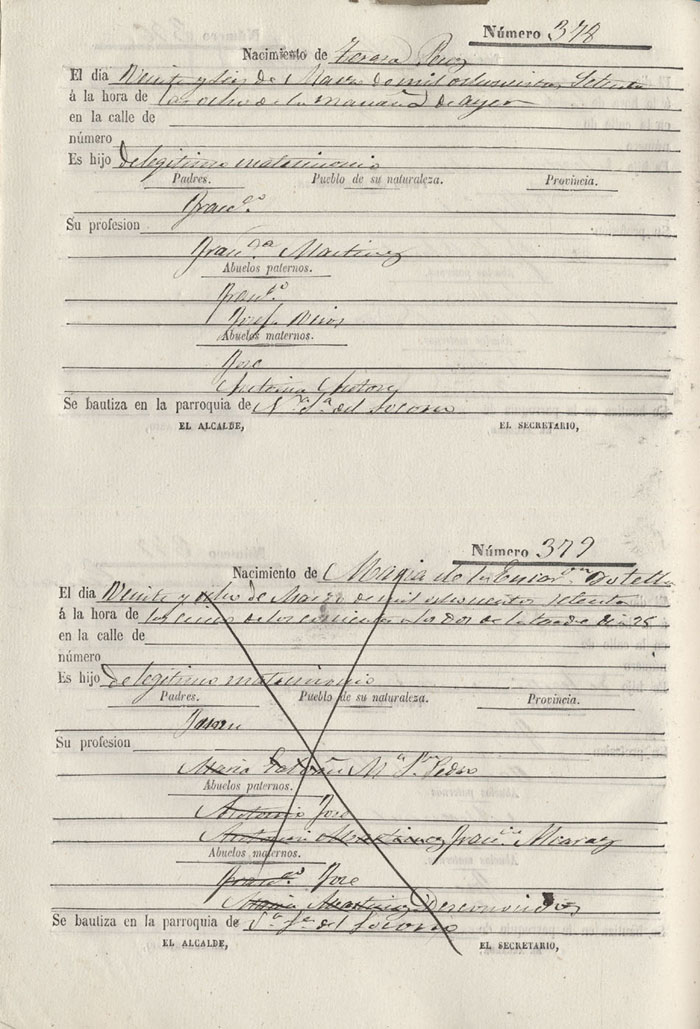 Número 378
Nacimiento de Teresa Perez
El dia Veinte y seis de Marzo de mil ochocientos setenta
á la hora de las ocho de la mañana de ayer
en la calle de
número
Es hijo de legitimo matrimonio
Padres. Pueblo de su naturaleza. Provincia.
Franco.
Su profesion
Franca. Martinez
Abuelos paternos.
Franco.
Josefa
Abuelos maternos.
Jose
Antonia
Se bautiza en la parroquia de Na. Sa. del Socorro
EL ALCALDE, EL SECRETARIO,
Número 379
Nacimiento de Maria de la Encaron. Botella
El dia Veinte y ocho de Marzo de mil ochocientos setenta
á la hora de las dos de la tarde dia 28
en la calle de
número
Es hijo de legitimo matrimonio
Padres. Pueblo de su naturaleza. Provincia.
Su profesion
Maria Ma.
Abuelos paternos.
Antonio Jose
Martinez Franca. Alcaraz
Abuelos maternos.
Franco. Jose
Martinez
Se bautiza en la parroquia de Sa. del Socorro
EL ALCALDE, EL SECRETARIO,